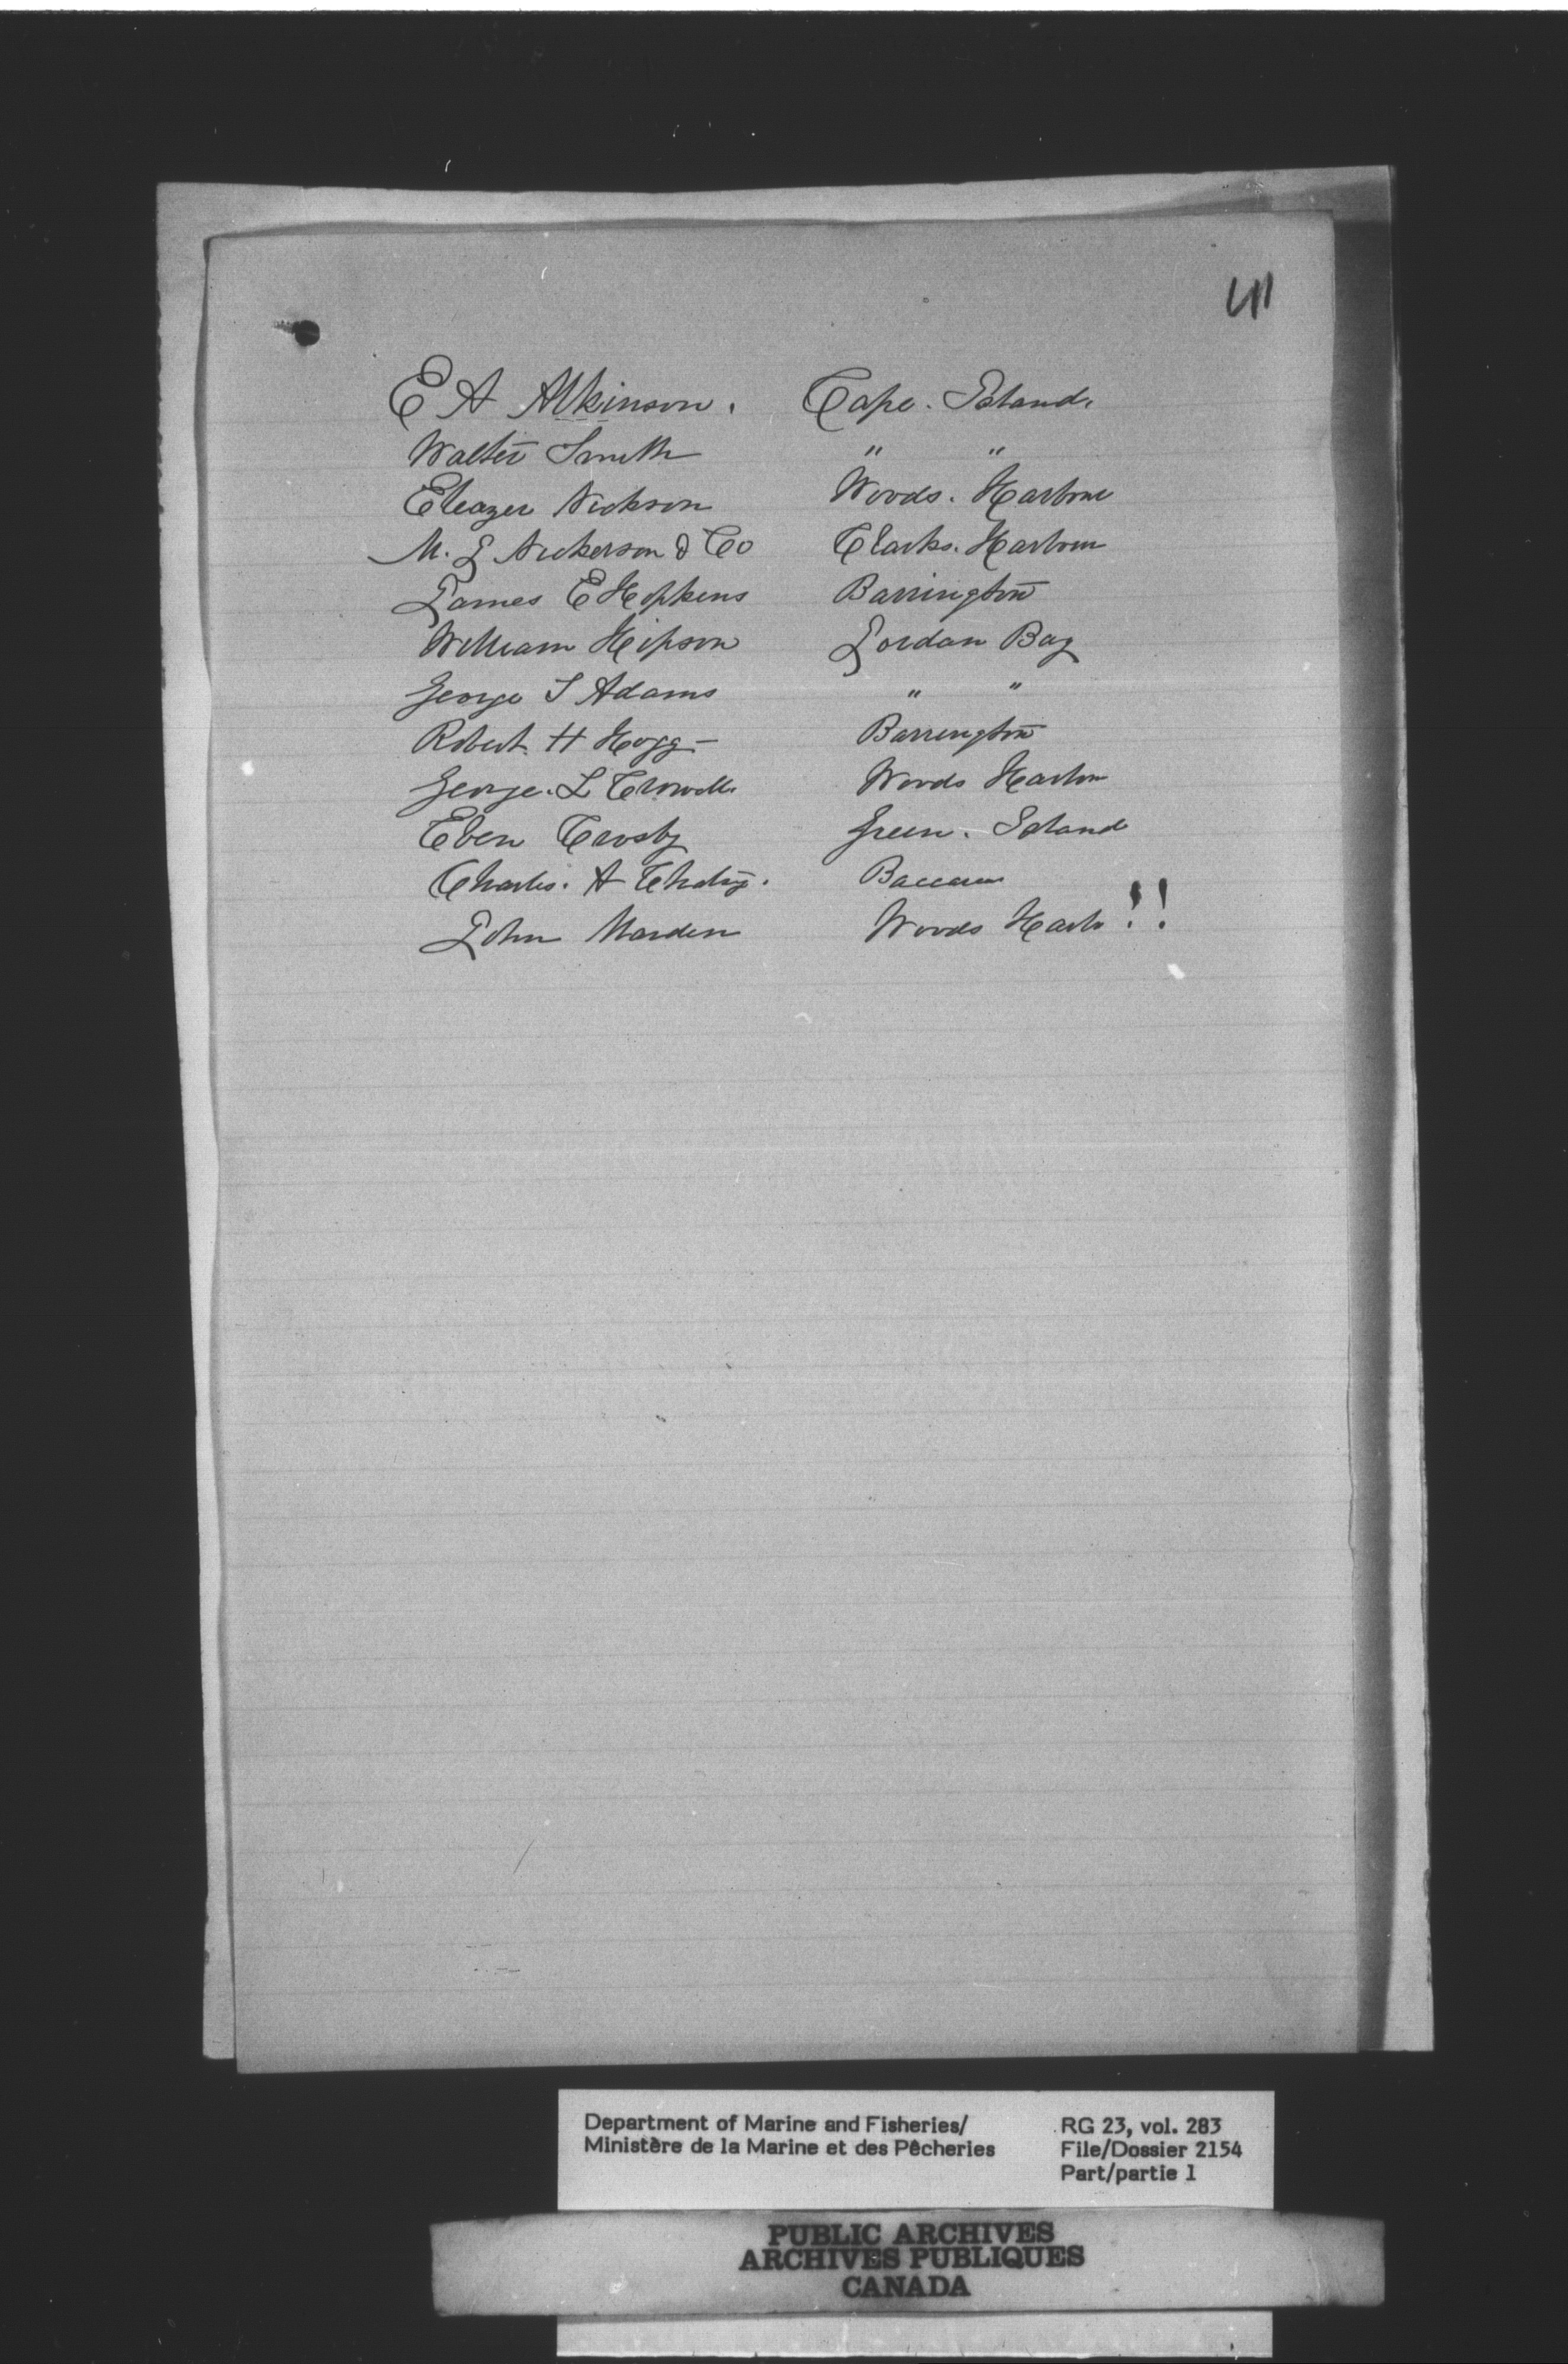 41
E A Atkinson. Cape. Island.
Walter Smith " "
Eleazer Nickson Woods. Harbour
M. J Nickerson & Co Clarks. Harbour
James E Hopkins Barrington
William Hipson Jordan Bay
George T Adams " "
Robert. H Hogg - Barrington
George. L Crowell. Woods Harbor
Eben Crosby Green. Island
Charles. A Baccaro
John Marden Woods Harb !!
Department of Marine and Fisheries/ RG 23, vol. 283
Ministère de la Marine et des Pêcheries File/Dossier 2154
Part/partie 1
PUBLIC ARCHIVES
ARCHIVES PUBLIQUES
CANADA